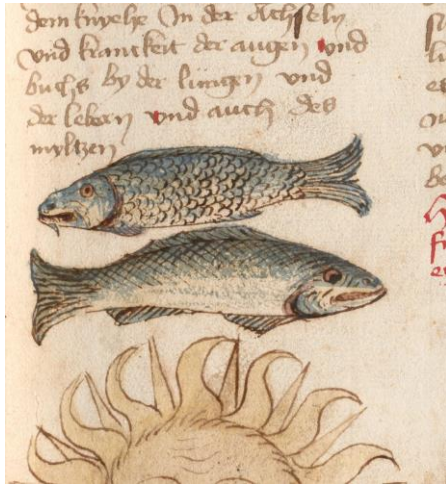 dem knyehe In der Achseln
vnd kranckeit der augen vnd
buchs by der lungen vnd
der lebern vnd auch des
myltzen